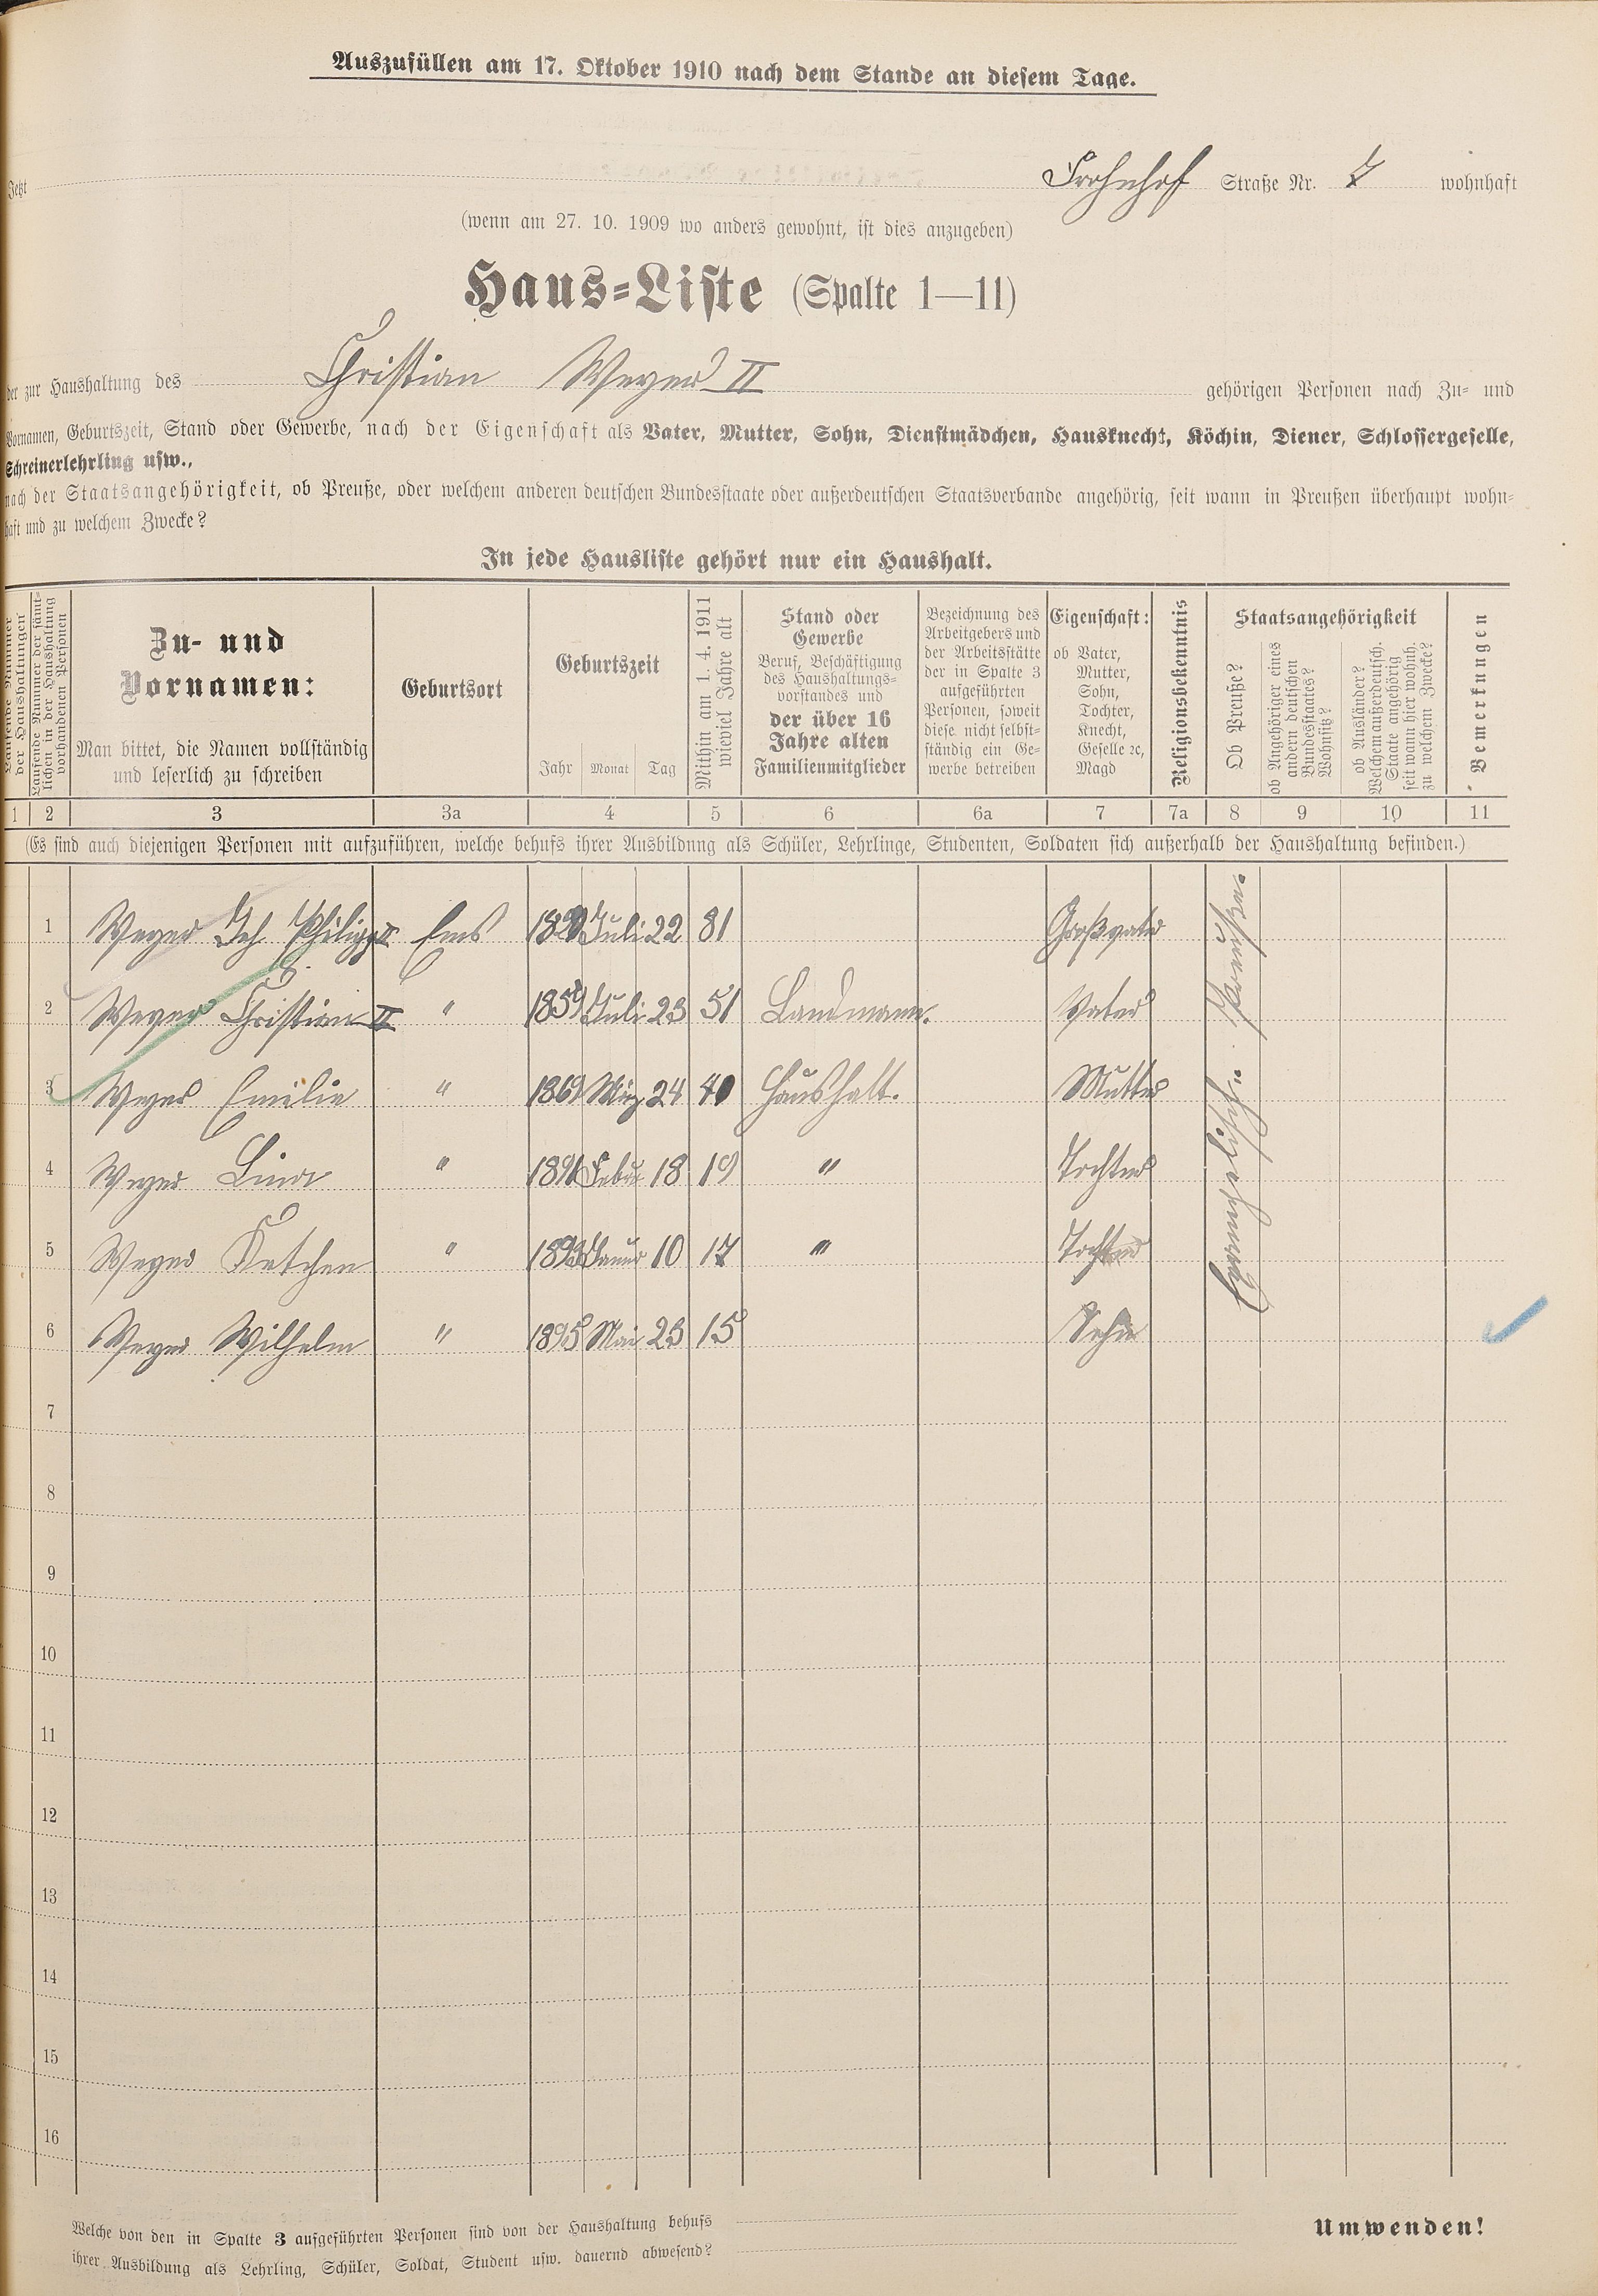 Auszufüllen am 17. Oktober 1910 nach dem Stande an diesem Tage.
Jetzt Frohnhof Straße Nr. 7 wohnhaft
(wenn am 27. 10. 1909 wo anders gewohnt, ist dies anzugeben)
Haus-Liste (Spalte 1—11)
der zur Haushaltung des Christian Weyer II gehörigen Personen nach Zu- und
Vornamen, Geburtszeit, Stand oder Gewerbe, nach der Eigenschaft als Vater, Mutter, Sohn, Dienstmädchen, Hausknecht, Köchin, Diener, Schlossergeselle,
Schreinerlehrling usw.,
nach der Staatsangehörigkeit, ob Preuße, oder welchem anderen deutschen Bundesstaate oder außerdeutschen Staatsverbande angehörig, seit wann in Preußen überhaupt wohn-
haft und zu welchem Zwecke?
In jede Hausliste gehört nur ein Haushalt.
Laufende Nummer
der Haushaltungen
Laufende Nummer der sämt-
lichen in der Haushaltung
vorhandenen Personen
Zu- und
Vornamen:
Man bittet, die Namen vollständig
und leserlich zu schreiben
Geburtsort
Geburtszeit
Jahr Monat Tag
Mithin am 1. 4. 1911
wieviel Jahre alt
Stand oder
Gewerbe
Beruf, Beschäftigung
des Haushaltungs-
vorstandes und
der über 16
Jahre alten
Familienmitglieder
Bezeichnung des
Arbeitgebers und
der Arbeitsstätte
der in Spalte 3
aufgeführten
Personen, soweit
diese nicht selbst-
ständig ein Ge-
werbe betreiben
Eigenschaft:
ob Vater,
Mutter,
Sohn,
Tochter,
Knecht,
Geselle ꝛc,
Magd
Religionsbekenntnis
Staatsangehörigkeit
Ob Preuße?
ob Angehöriger eines
andern deutschen
Bundesstaates?
Wohnsitz?
ob Ausländer?
Welchem außerdeutsch.
Staate angehörig
seit wann hier wohnh.
zu welchem Zwecke?
Bemerkungen
1 2 3 3a 4 5 6 6a 7 7a 8 9 10 11
(Es sind auch diejenigen Personen mit aufzuführen, welche behufs ihrer Ausbildung als Schüler, Lehrlinge, Studenten, Soldaten sich außerhalb der Haushaltung befinden.)
1 Weyer Joh. Philipp II Ems Juli 22 81 Großvater
2 Weyer Christian II " 1859 Juli 23 51 Landmann. Vater
3 Weyer Emilie " 1869 März 24 40 Haushalt. Mutter
4 Weyer Lina " 1891 Febr 18 19 " Tochter
5 Weyer Ketchen " 1893 Januar 10 17 " Tochter
6 Weyer Wilhelm " 1895 Mai 23 15 Sohn
Evangelisch. Preußen.
7
8
9
10
11
12
13
14
15
16
Welche von den in Spalte 3 aufgeführten Personen sind von der Haushaltung behufs
ihrer Ausbildung als Lehrling, Schüler, Soldat, Student usw. dauernd abwesend?
Umwenden!